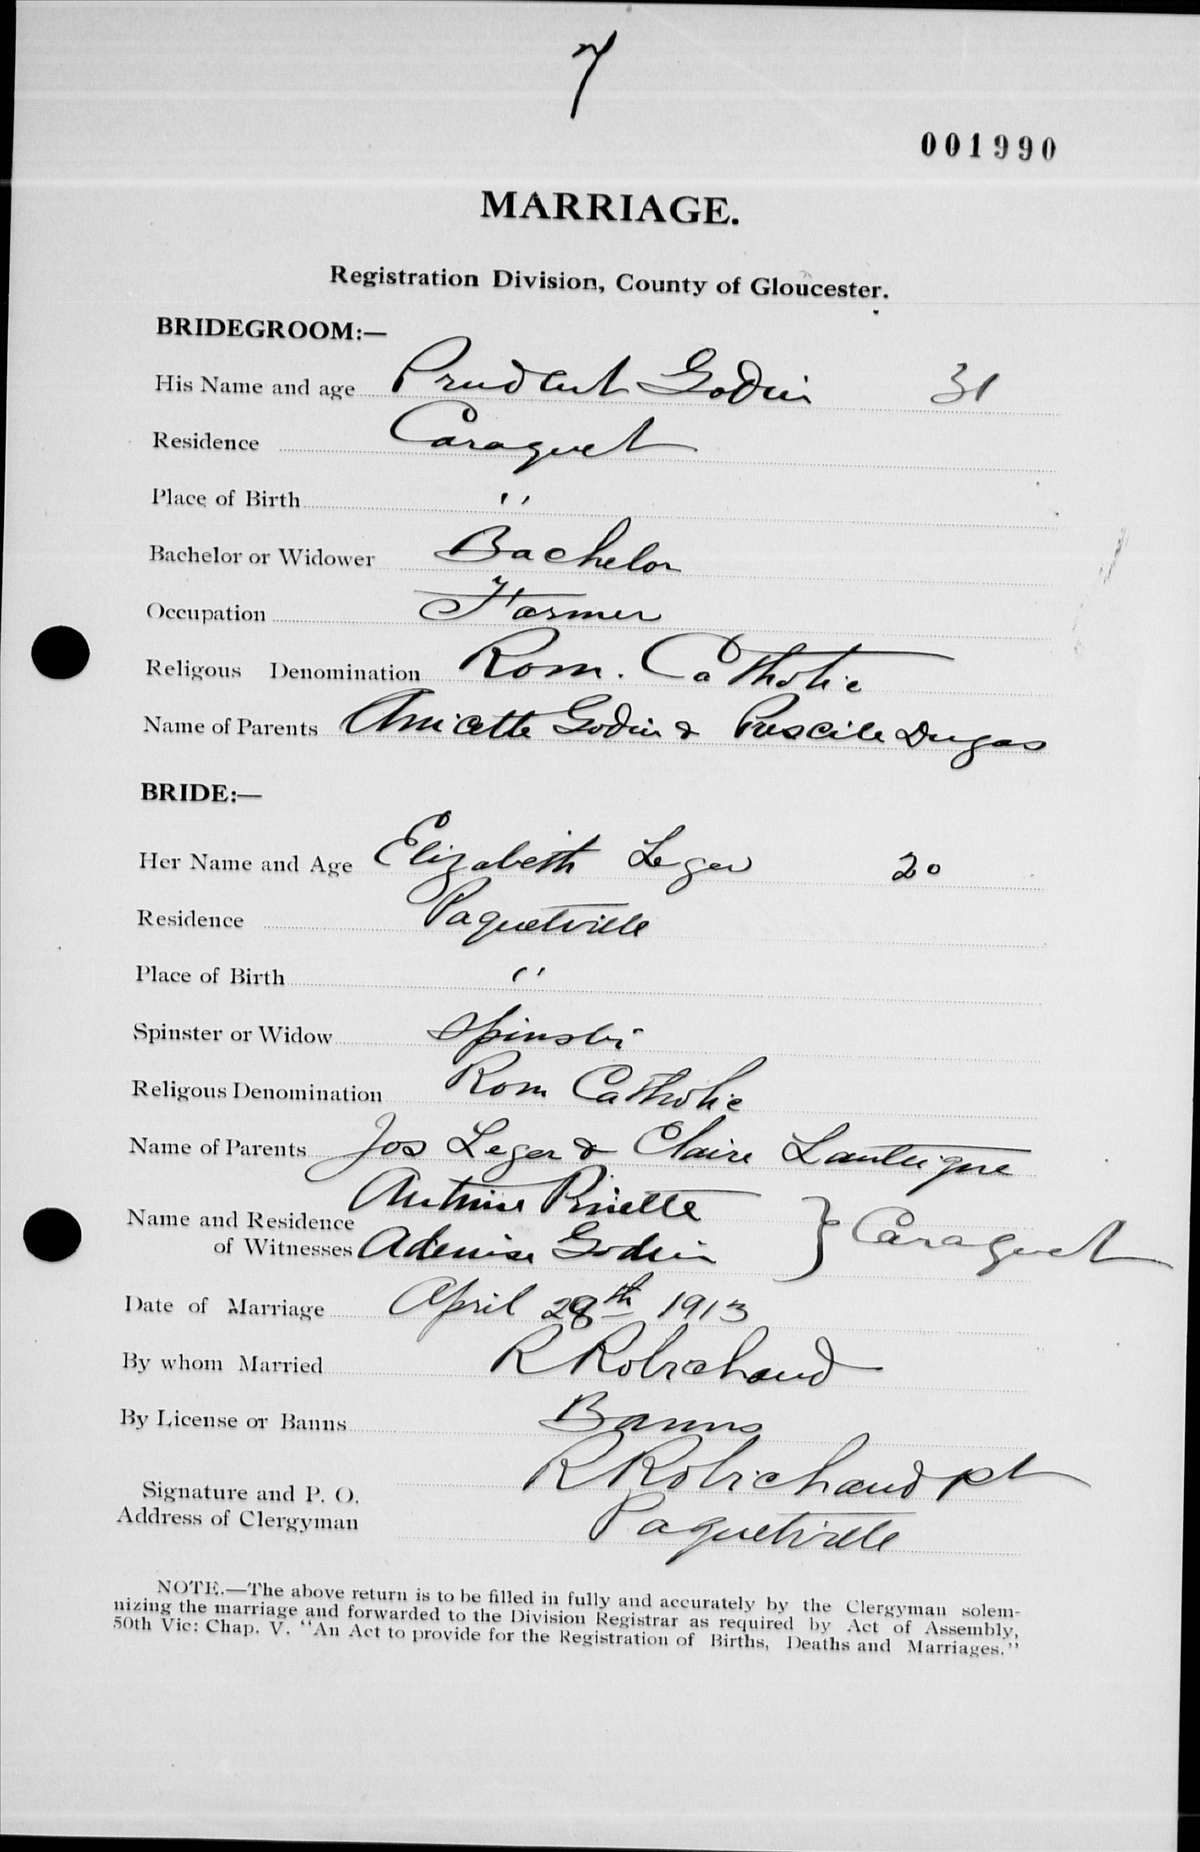 7
001990
MARRIAGE.
Registration Division, County of Gloucester.
BRIDEGROOM:—
His Name and age Prudent Godin 31
Residence Caraquet
Place of Birth "
Bachelor or Widower Bachelor
Occupation Farmer
Religous Denomination Rom. Catholic
Name of Parents Anicette Godin & Prescile Dugas
BRIDE:—
Her Name and Age Elizabeth Leger 20
Residence Paquetville
Place of Birth "
Spinster or Widow Spinster
Religous Denomination Rom Catholic
Name of Parents Jos Leger & Claire Lanteigne
Antoine Pinette
Name and Residence } Caraquet
of Witnesses Godin
Date of Marriage April 28th 1913
By whom Married R Robichaud
By License or Banns Banns
R Robichaud pt
Signature and P. O.
Address of Clergyman Paquetville
NOTE.—The above return is to be filled in fully and accurately by the Clergyman solem-
nizing the marriage and forwarded to the Division Registrar as required by Act of Assembly,
50th Vic: Chap. V. "An Act to provide for the Registration of Births, Deaths and Marriages."